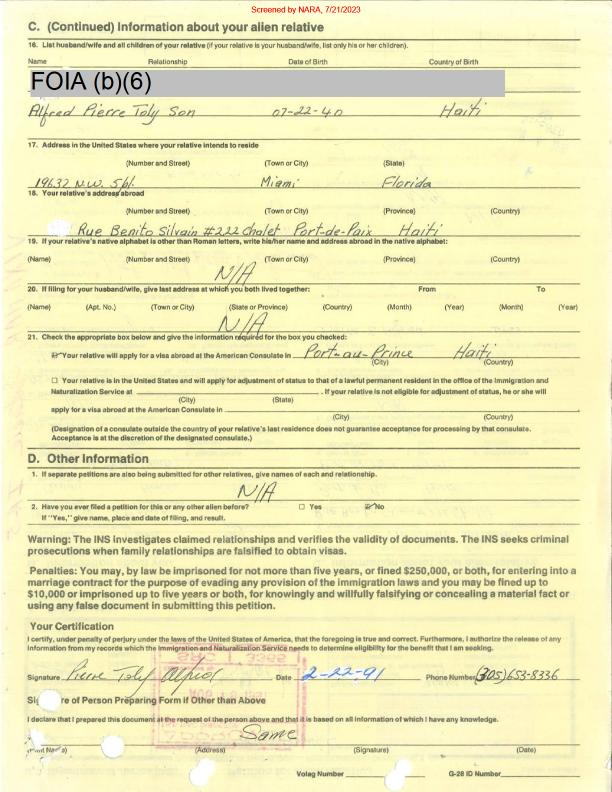 Screened by NARA, 7/21/2023
C. (Continued) Information about your alien relative
16. List husband/wife and all children of your relative (if your relative is your husband/wife, list only his or her children).
Name Relationship Date of Birth Country of Birth
FOIA (b)(6)
Alfred Pierre Toly Son 07-22-40 Haiti
17. Address in the United States where your relative intends to reside
(Number and Street) (Town or City) (State)
19632 N.W. 5pl. Miami Florida
18. Your relative's address abroad
(Number and Street) (Town or City) (Province) (Country)
Rue Benito Silvain #222 chalet Port-de-Paix Haiti
19. If your relative's native alphabet is other than Roman letters, write his/her name and address abroad in the native alphabet:
(Name) (Number and Street) (Town or City) (Province) (Country)
N/A
20. If filing for your husband/wife, give last address at which you both lived together: From To
(Name) (Apt. No.) (Town or City) (State or Province) (Country) (Month) (Year) (Month) (Year)
N/A
21. Check the appropriate box below and give the information required for the box you checked:
Your relative will apply for a visa abroad at the American Consulate in Port-au-Prince Haiti
(City) (Country)
☐ Your relative is in the United States and will apply for adjustment of status to that of a lawful permanent resident in the office of the Immigration and
Naturalization Service at . If your relative is not eligible for adjustment of status, he or she will
(City) (State)
apply for a visa abroad at the American Consulate in
(City) (Country)
(Designation of a consulate outside the country of your relative's last residence does not guarantee acceptance for processing by that consulate.
Acceptance is at the discretion of the designated consulate.)
D. Other Information
1. If separate petitions are also being submitted for other relatives, give names of each and relationship.
N/A
2. Have you ever filed a petition for this or any other alien before? ☐ Yes ☑ No
If "Yes," give name, place and date of filing, and result.
Warning: The INS investigates claimed relationships and verifies the validity of documents. The INS seeks criminal
prosecutions when family relationships are falsified to obtain visas.
Penalties: You may, by law be imprisoned for not more than five years, or fined $250,000, or both, for entering into a
marriage contract for the purpose of evading any provision of the immigration laws and you may be fined up to
$10,000 or imprisoned up to five years or both, for knowingly and willfully falsifying or concealing a material fact or
using any false document in submitting this petition.
Your Certification
I certify, under penalty of perjury under the laws of the United States of America, that the foregoing is true and correct. Furthermore, I authorize the release of any
information from my records which the Immigration and Naturalization Service needs to determine eligibility for the benefit that I am seeking.
Signature Pierre Toly Alfred Date 2-22-91 Phone Number (305) 653-8336
Signature of Person Preparing Form if Other than Above
I declare that I prepared this document at the request of the person above and that it is based on all information of which I have any knowledge.
Same
(Print Name) (Address) (Signature) (Date)
Volag Number G-28 ID Number